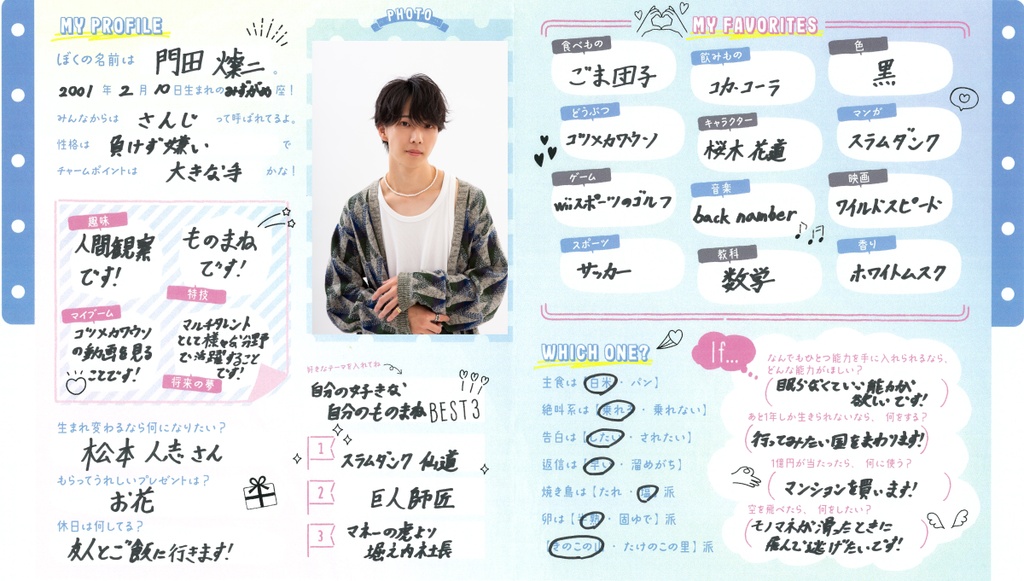 MY PROFILE
ぼくの名前は 門田 燦二。
2001年2月10日生まれのみずがめ座！
みんなからは さんじ って呼ばれてるよ。
性格は 負けず嫌い で
チャームポイントは 大きな手 かな！
趣味
人間観察
です!
特技
ものまね
です!
マイブーム
コツメカワウソ
の動画を見る
ことです!
将来の夢
マルチタレント
として様々な分野
で活躍すること
です!
生まれ変わるなら何になりたい？
松本 人志さん
もらってうれしいプレゼントは？
お花
休日は何してる？
友人とご飯に行きます!
PHOTO
好きなテーマを入れてね
自分の好きな
自分のものまね BEST3
1 スラムダンク 仙道
2 巨人師匠
3 マネーの虎より
堀之内社長
MY FAVORITES
食べもの
ごま団子
飲みもの
コカ・コーラ
色
黒
どうぶつ
コツメカワウソ
キャラクター
桜木 花道
マンガ
スラムダンク
ゲーム
wiiスポーツのゴルフ
音楽
back namber
映画
ワイルドスピード
スポーツ
サッカー
教科
数学
香り
ホワイトムスク
WHICH ONE?
主食は【白米・パン】
絶叫系は【乗れる・乗れない】
告白は【したい・されたい】
返信は【早い・溜めがち】
焼き鳥は【たれ・塩】派
卵は【半熟・固ゆで】派
【きのこの山・たけのこの里】派
If...
なんでもひとつ能力を手に入れられるなら、
どんな能力がほしい？
(眠らなくていい能力が
欲しいです!)
あと1年しか生きられないなら、何をする？
(行ってみたい国をまわります!)
1億円が当たったら、何に使う？
(マンションを買います!)
空を飛べたら、何をしたい？
(モノマネが滑ったときに
飛んで逃げたいです!)